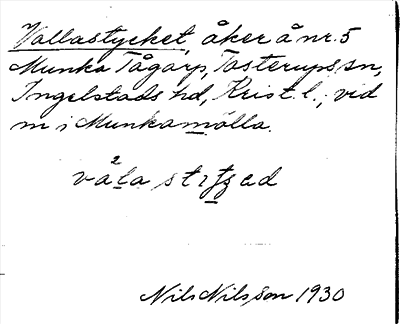 Vallastycket, åker å nr. 5
Munka Tågarp, Tosterups sn,
Ingelstads hd, Krist. l., vid
m i Munkamölla.
våla
Nils Nilsson 1930